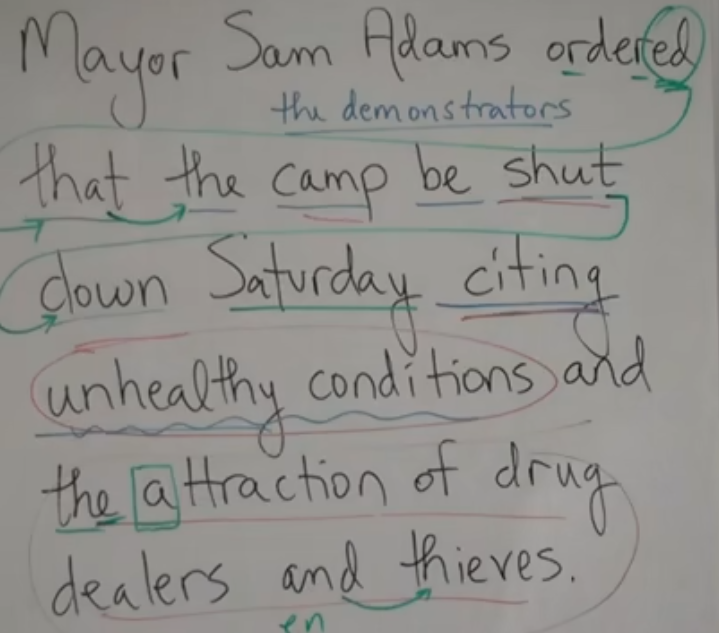 Mayor Sam Adams ordered
the demonstrators
that the camp be shut
down Saturday citing
unhealthy conditions and
the attraction of drug
dealers and thieves.
en